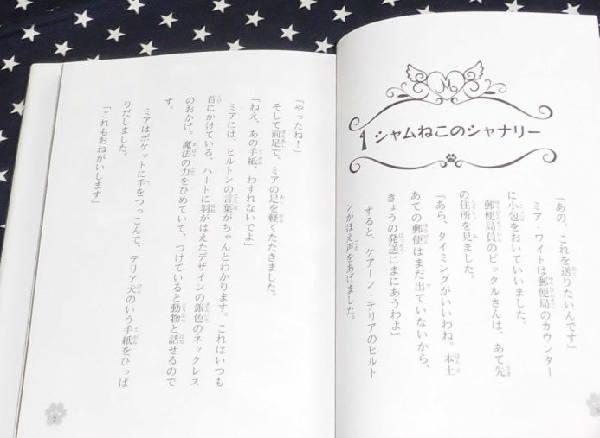 1 シャムねこのシャナリー
「あの、これを送りたいんです」
ミア・ワイトは郵便局のカウンター
に小包をおいていいました。
郵便局員のビックルさんは、あて先
の住所を見ました。
「あら、タイミングがいいわね。本土
あての郵便はまだ出ていないから、
きょうの発送にまにあうわよ」
すると、ケアーン・テリアのヒルト
ンがほえ声をあげました。
「やったね！」
そして前足で、ミアの足を軽くたたきました。
「ねえ、あの手紙、わすれないでよ」
ミアには、ヒルトンの言葉がちゃんとわかります。これはいつも
首にかけている、ハートに羽がはえたデザインの銀色のネックレス
のおかげ。魔法の力をひめていて、つけていると動物と話せるので
す。
ミアはポケットに手をつっこんで、テリア犬のいう手紙をひっぱ
りだしました。
「これもおねがいします」